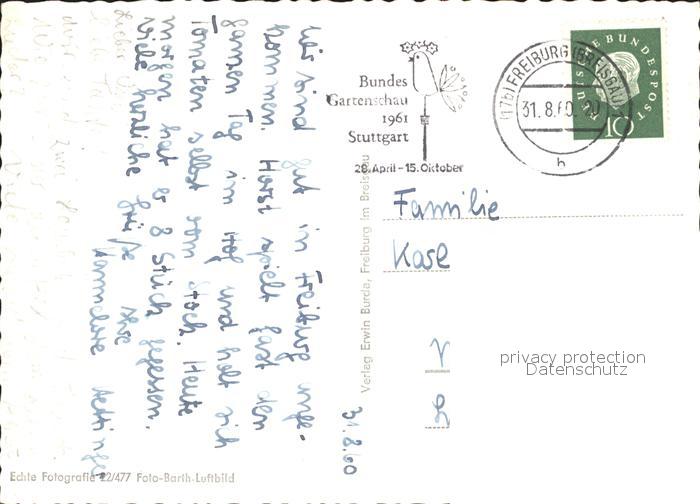 Bundes
Gartenschau
1961
Stuttgart
28. April - 15. Oktober
(17b) FREIBURG (BREISGAU)
31.8.60. 20
h
DEUTSCHE BUNDESPOST
10
Familie
Karl
privacy protection
Datenschutz
Verlag Erwin Burda, Freiburg im Breisgau
31.8.60
Wir sind gut in Freiburg ange-
kommen. Horst spielt fast den
ganzen Tag im Hof und holt sich
Tomaten selbst vom Stock. Heute
morgen hat er 8 Stück gegessen.
viele herzliche Grüße
Ihre
Hannelore
Echte Fotografie 22/477 Foto-Barth-Luftbild